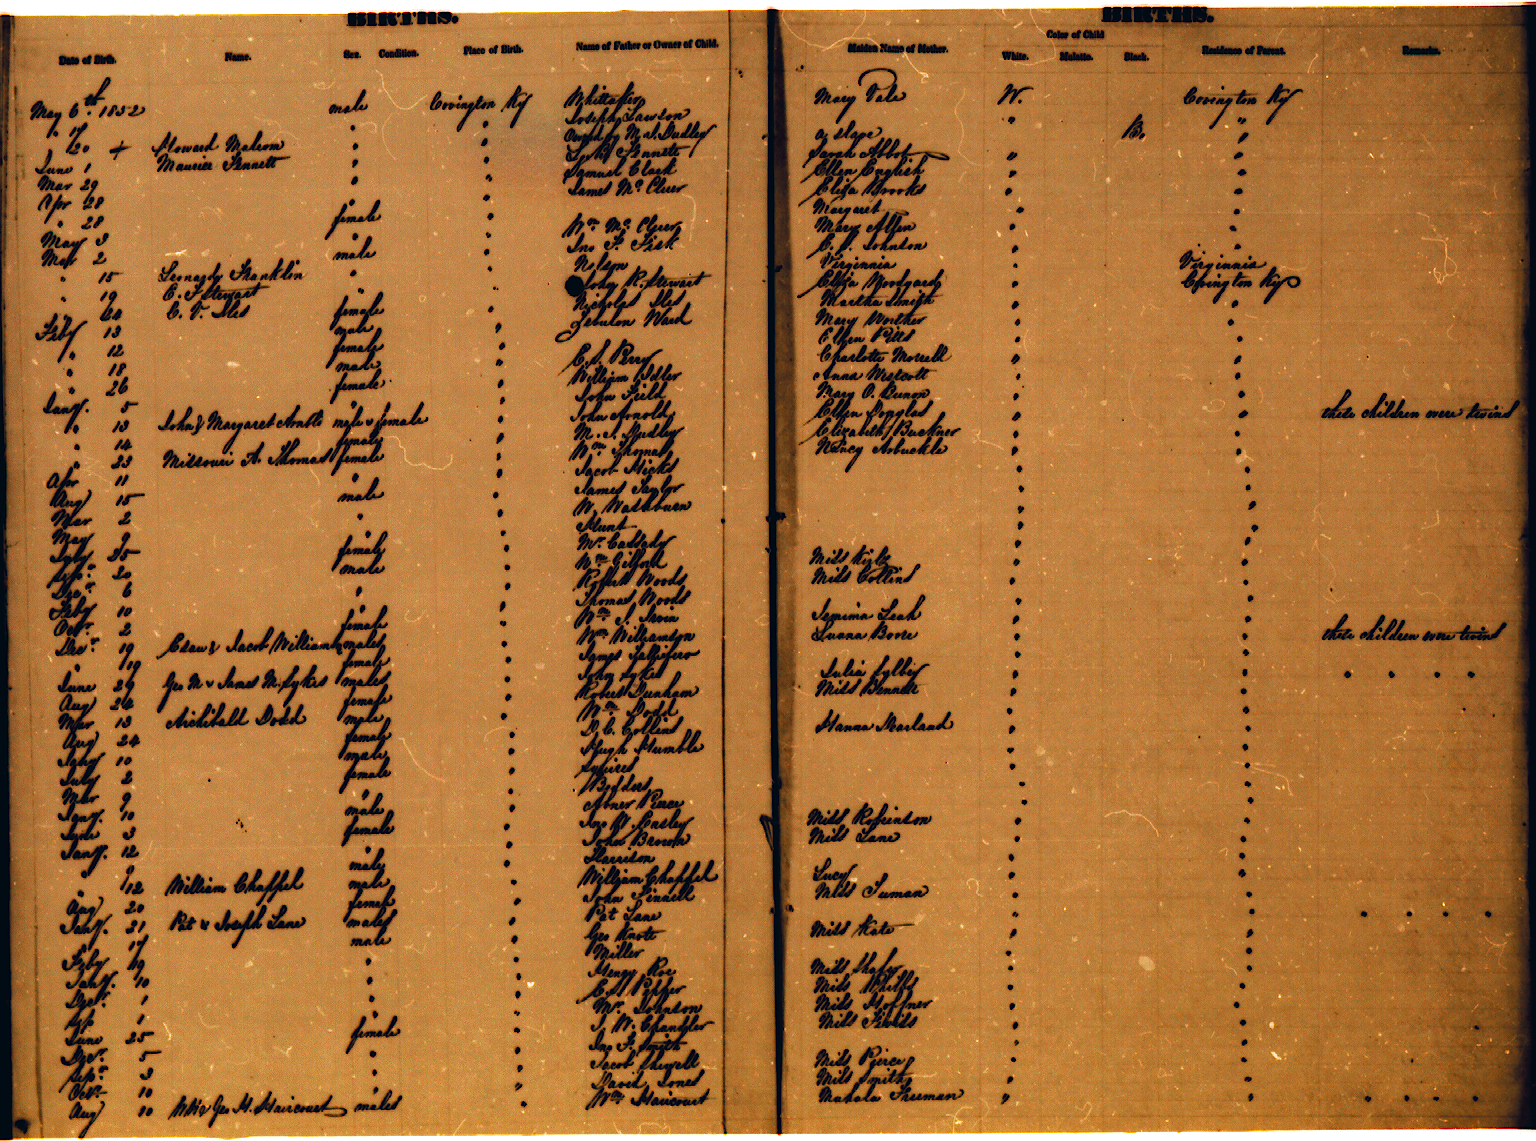 BIRTHS.
Date of Birth. Name. Sex. Condition. Place of Birth. Name of Father or Owner of Child.
May 6th 1852 male Covington Ky Whittaker
" 17 " " Joseph Lawson
" 20 + Howard Malcom " " Owned by M. S. Dudley
June 1 Maurice Fennett " " Fennett
Mar 29 " " Samuel Clack
Apr 28 " " James Mc Cluer
" 28 female "
May 3 " " Wm Mc Cluer
Mar 2 male " Jno F. Fisk
" 15 Franklin " " Nelson
" 19 E. F Stewart " " John R. Stewart
" 24 C. V. Iles female " Nicholas Iles
Feby 13 male " Zebulon Ward
" 12 female "
" 18 male " C. S. Perry
" 26 female " William Idler
Jany. 5 " " John Field
" 13 John & Margaret Arnold male & female " John Arnold
" 14 female " M. S. Dudley
" 23 Missouri A. Thomas female " Wm Thomas
Apr 11 " " Jacob Hicks
Aug 15 male " James Taylor
Mar 2 " " W. Washburn
May 9 " Hunt
July 25 female " Mr. Cassedy
Sep. 20 male " Wm Gilford
Decr 6 " " Robert Woods
Feby 10 " " Thomas Woods
Octr. 2 female " Wm J. Irvin
Decr. 19 Esau & Jacob Williamson males " Wm Williamson
" 19 female " James Tallifero
June 29 Geo N & James M. Sykes males " John Sykes
Aug 24 female " Robert Dunham
Mar 13 Archibald Dodd male " Wm Dodd
Aug 24 female " D. C. Collins
Jany 10 male " Hugh Humble
July 2 female " Squires
Mar 9 " " Beddoes
Jany. 10 male " Abner Pierce
June 3 female " Jno W. Ensley
Jany. 12 " John Brown
" 9 male " Harrison
" 12 William Chappel male " William Chappel
Aug 20 female " John Finnell
Jany. 21 Pat & Joseph Lane males " Pat Lane
" 17 male " Geo Knote
Feby 19 " " Miller
Jany. 10 " " Henry Roe
Decr. 1 " " C. A. Pepper
Sep 1 " " Mr. Johnson
June 25 female " J. W. Chandler
Decr. 5 " " Jno F. Smith
Sepr. 3 " " Jacob Shewell
Octr. 10 " " David Jones
Aug 10 Wm & Geo H. Haircourt males " Wm Haircourt
BIRTHS.
Maiden Name of Mother. Color of Child White. Mulatto. Black. Residence of Parent. Remarks.
Mary Vale W. Covington Ky
a slave B. "
Sarah Abbot " "
Ellen English " "
Eliza Brooks " "
Margaret " "
Mary Allen " "
C. S. Johnson " "
Virginnia " Virginnia
Eliza Woodyard " Covington Ky
Martha Smith " "
Mary Worther " "
Ellen Pitts " "
Charlotte Morrell " "
Anna Westcott " "
Mary O. Bunon " "
Ellen Douglas " " these children were twins
Elizabeth Buckner " "
Nancy Arbuckle " "
Miss Kirby " "
Miss Collins " "
Jemima Leah " "
Luana Boone " " these children were twins
Julia Sylby " " " " " "
Miss Bennett " "
Hanna Marland " "
Miss Robinson " "
Miss Lane " "
Lucy " "
Miss Suman " "
" " " "
Miss Kate " "
Miss Shafer " "
Miss Philps " "
Miss Hoffner " "
Miss Fields " "
Miss Pierce " "
Miss Smith " "
Mahala Freeman " " " " " "